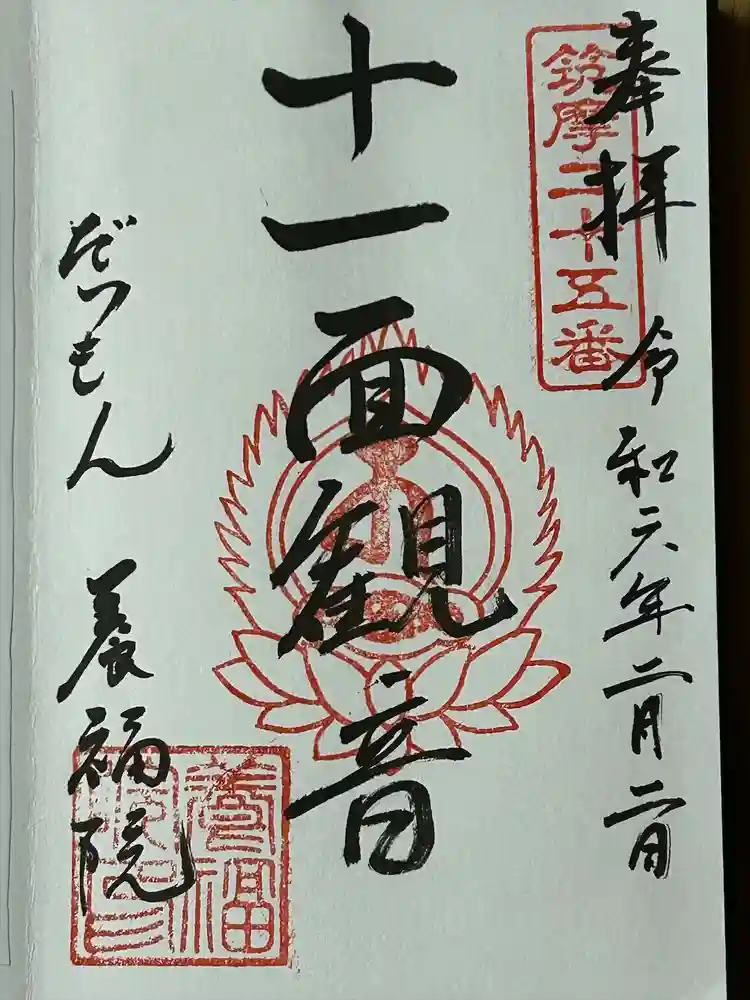 奉拝
令和六年二月二日
筑摩三十五番
十一面観音
だつもん
養福院
養福